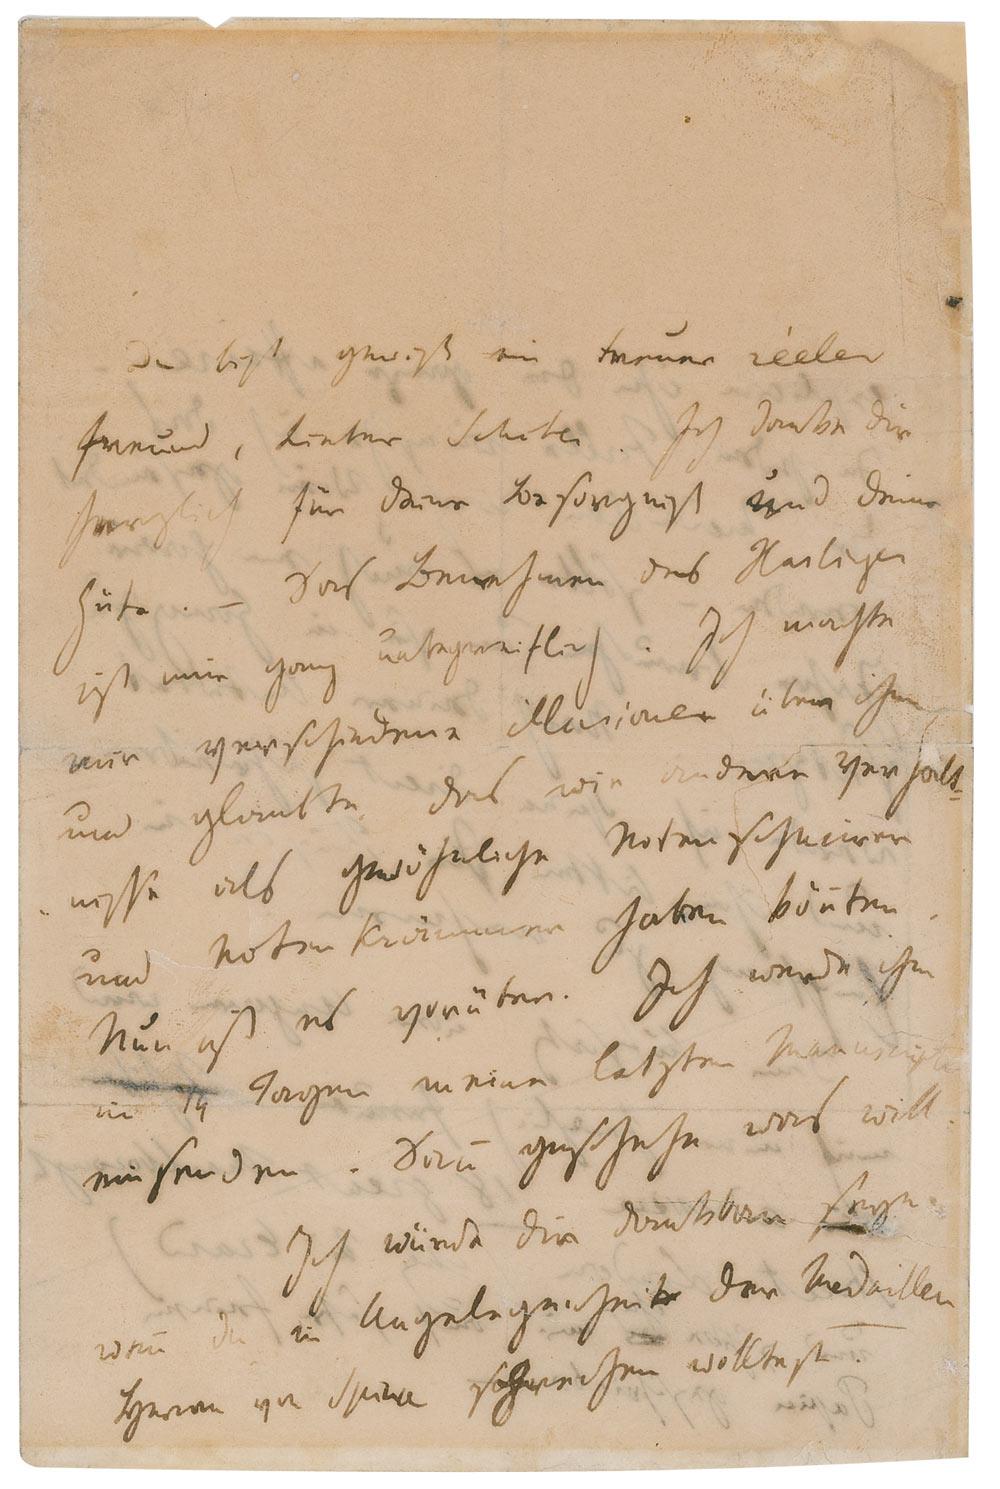 Du bist gewiß ein treuer reeler
Freund, lieber Schebek. Ich danke dir
herzlich für deine Besorgniß und deine
Güte. – Das Benehmen des Heiligen
ist mir ganz unbegreiflich. Ich machte
mir verschiedene illusionen über ihn,
und glaubte, das wir andere Verhält=
nisse als gewöhnliche Notenschmierer
und Notenkrämmer haben könnten.
Nun ist es vorüber. Ich werde ihm
in 14 Tagen meine letzten Manuscripte
einsenden. Dann geschehe was will.
Ich würde dir dankbar seyn
wenn du in Angelegenheit der Medaillen
Herrn von Spina sprechen wolltest.